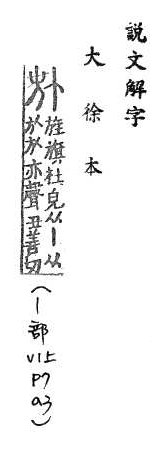 說文解字
大徐本
旌旗杠皃从丨从
㫃㫃亦聲丑善切
(丨部 V1上 P7 a3)